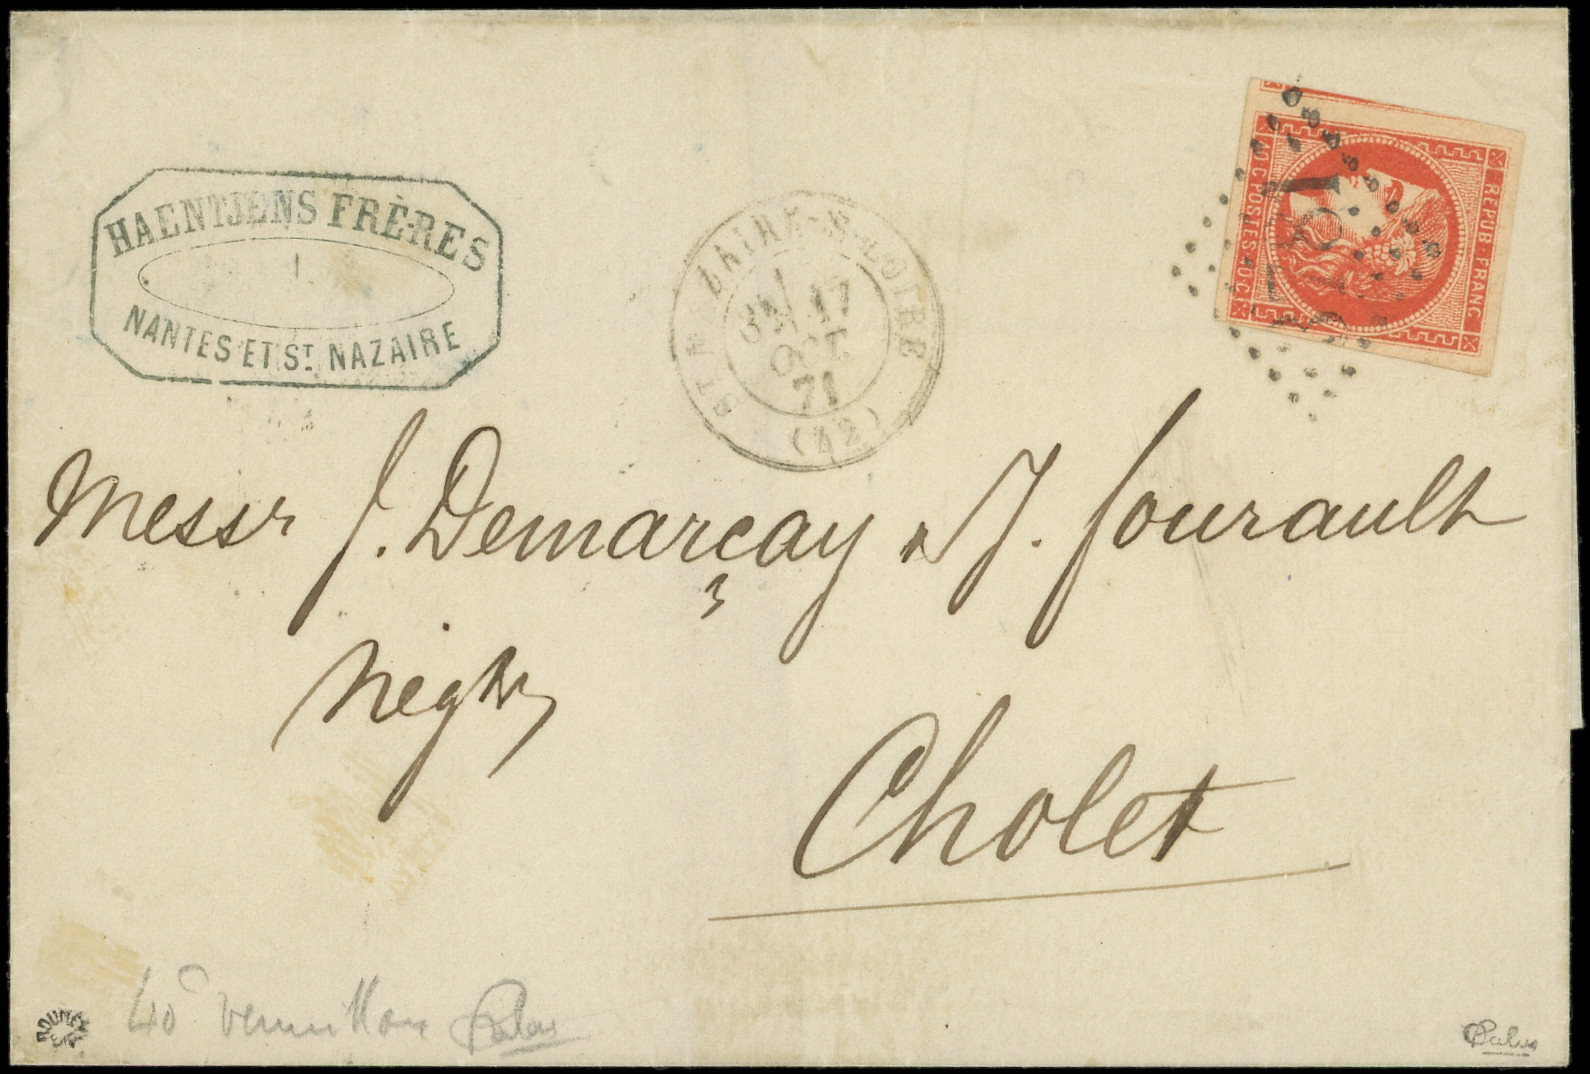 HAENTJENS FRÈRES
NANTES ET ST. NAZAIRE
ST NAZAIRE-S-LOIRE
17
OCT
71
(42)
REPUB. FRANC.
40 C POSTES 40 C
Messrs J. Demarçay & J. fourault
Négts
Cholet
40c vermillon Calves
ROUMET
Calves